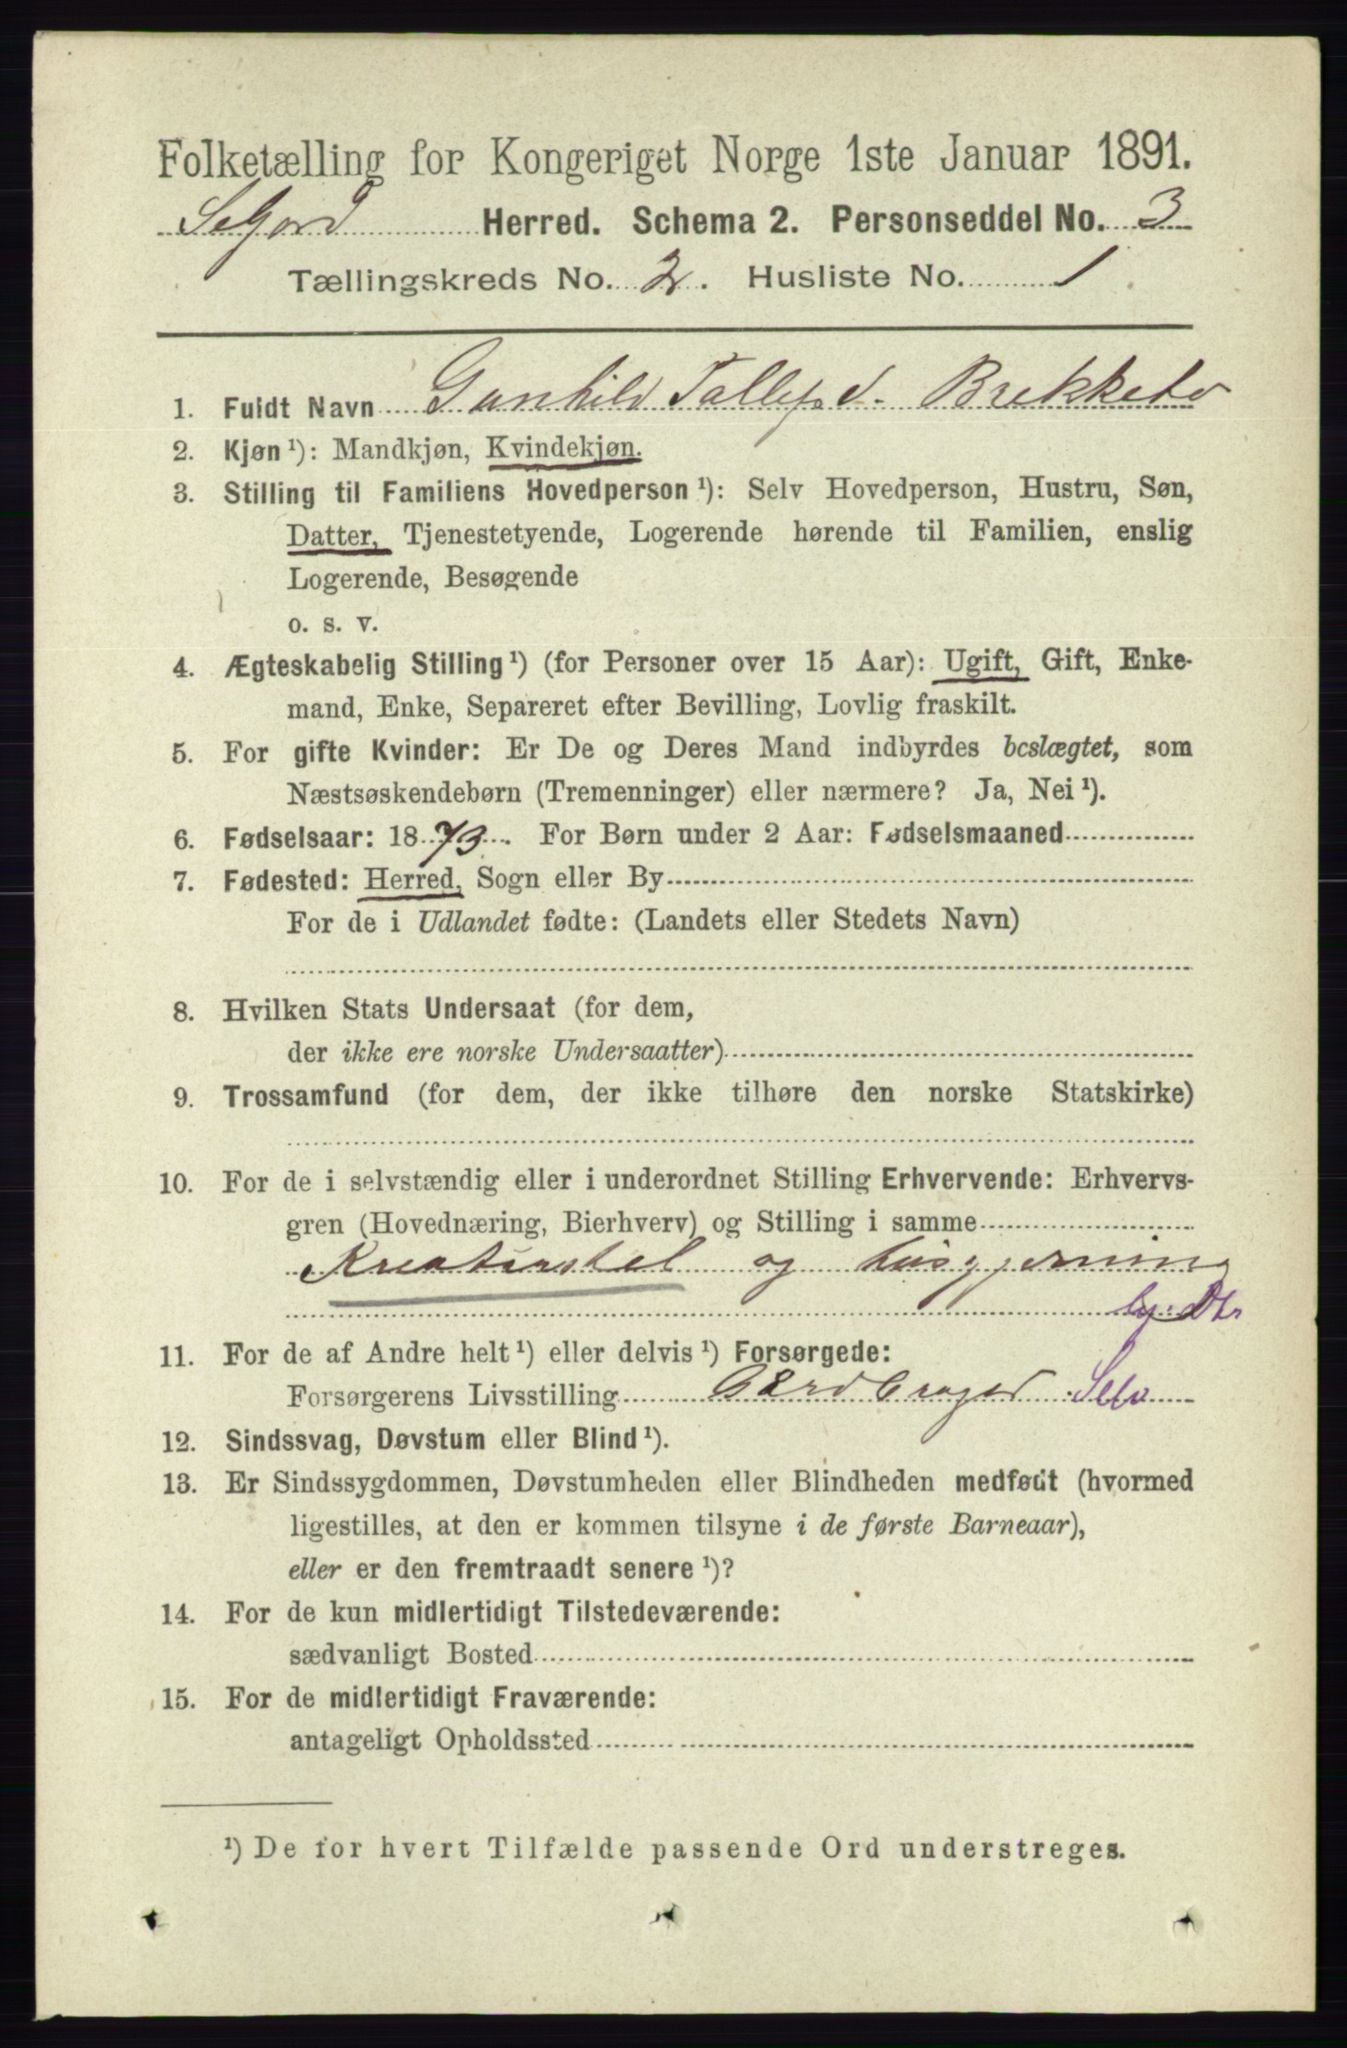 Folketælling for Kongeriget Norge 1ste Januar 1891.
Seljord Herred. Schema 2. Personseddel No. 3
Tællingskreds No. 2. Husliste No. 1
1. Fuldt Navn Gunhild Tallefsd. Brekketo
2. Kjøn ¹): Mandkjøn, Kvindekjøn.
3. Stilling til Familiens Hovedperson ¹): Selv Hovedperson, Hustru, Søn,
Datter, Tjenestetyende, Logerende hørende til Familien, enslig
Logerende, Besøgende
o. s. v.
4. Ægteskabelig Stilling ¹) (for Personer over 15 Aar): Ugift, Gift, Enke-
mand, Enke, Separeret efter Bevilling, Lovlig fraskilt.
5. For gifte Kvinder: Er De og Deres Mand indbyrdes beslægtet, som
Næstsøskendebørn (Tremenninger) eller nærmere? Ja, Nei ¹).
6. Fødselsaar: 1873. For Børn under 2 Aar: Fødselsmaaned
7. Fødested: Herred, Sogn eller By
For de i Udlandet fødte: (Landets eller Stedets Navn)
8. Hvilken Stats Undersaat (for dem,
der ikke ere norske Undersaatter)
9. Trossamfund (for dem, der ikke tilhøre den norske Statskirke)
10. For de i selvstændig eller i underordnet Stilling Erhvervende: Erhvervs-
gren (Hovednæring, Bierhverv) og Stilling i samme
Kreaturstel og husgjerning
11. For de af Andre helt ¹) eller delvis ¹) Forsørgede:
Forsørgerens Livsstilling Gårdbruger Selv
12. Sindssvag, Døvstum eller Blind ¹).
13. Er Sindssygdommen, Døvstumheden eller Blindheden medfødt (hvormed
ligestilles, at den er kommen tilsyne i de første Barneaar),
eller er den fremtraadt senere ¹)?
14. For de kun midlertidigt Tilstedeværende:
sædvanligt Bosted
15. For de midlertidigt Fraværende:
antageligt Opholdssted
¹) De for hvert Tilfælde passende Ord understreges.